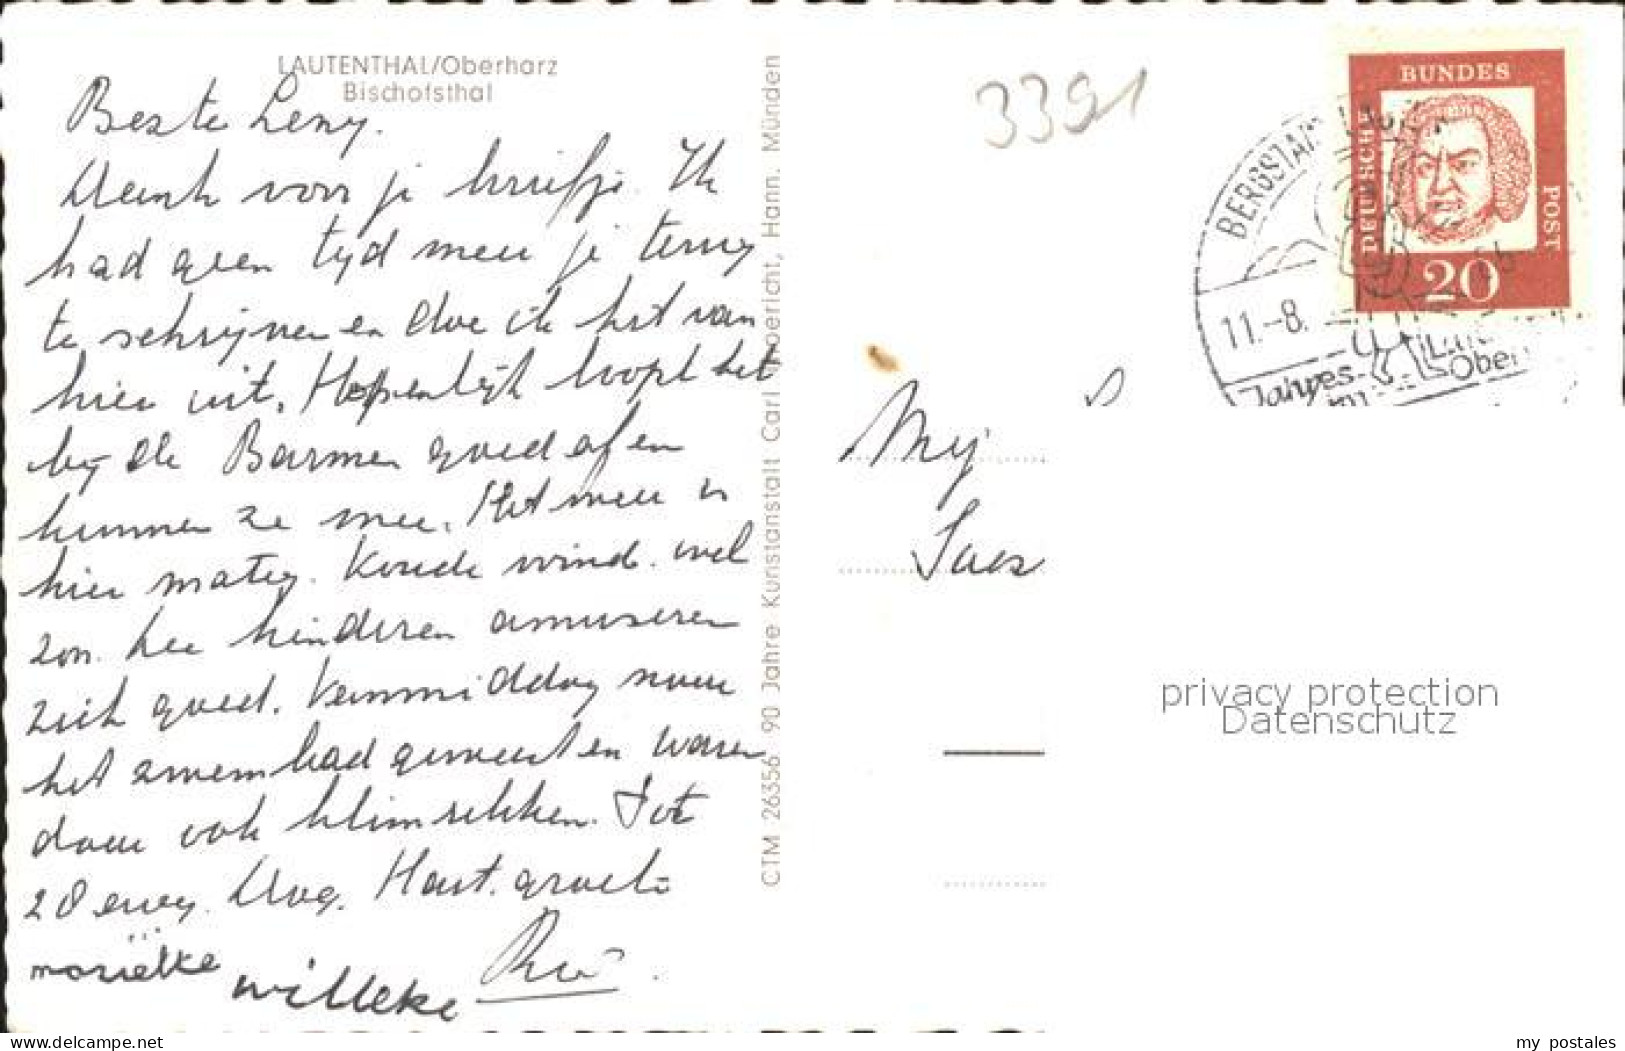 LAUTENTHAL/Oberharz
Bischofsthal
Beste Leny.
Dank voor je briefje. Ik
had geen tijd meer je terug
te schrijven en doe ik het van
hier uit. Hopenlijk loopt het
bij de Barmen goed af en
kunnen ze mee. Het weer is
hier matig. Koude wind. wel
zon. De kinderen amuseren
zich goed. Vanmiddag naar
het zwembad geweest en waren
daar ook klimrekken. Tot
28 Aug. Hart. groet
mariëlke willeke
CTM 26356 90 Jahre Kunstanstalt Carl Hann. Münden
3391
BUNDES
POST
DEUTSCHE
20
BERGSTADT
11.-8.
Jahres-
Ober
Mej
privacy protection
Datenschutz
www.delcampe.net
my_postales